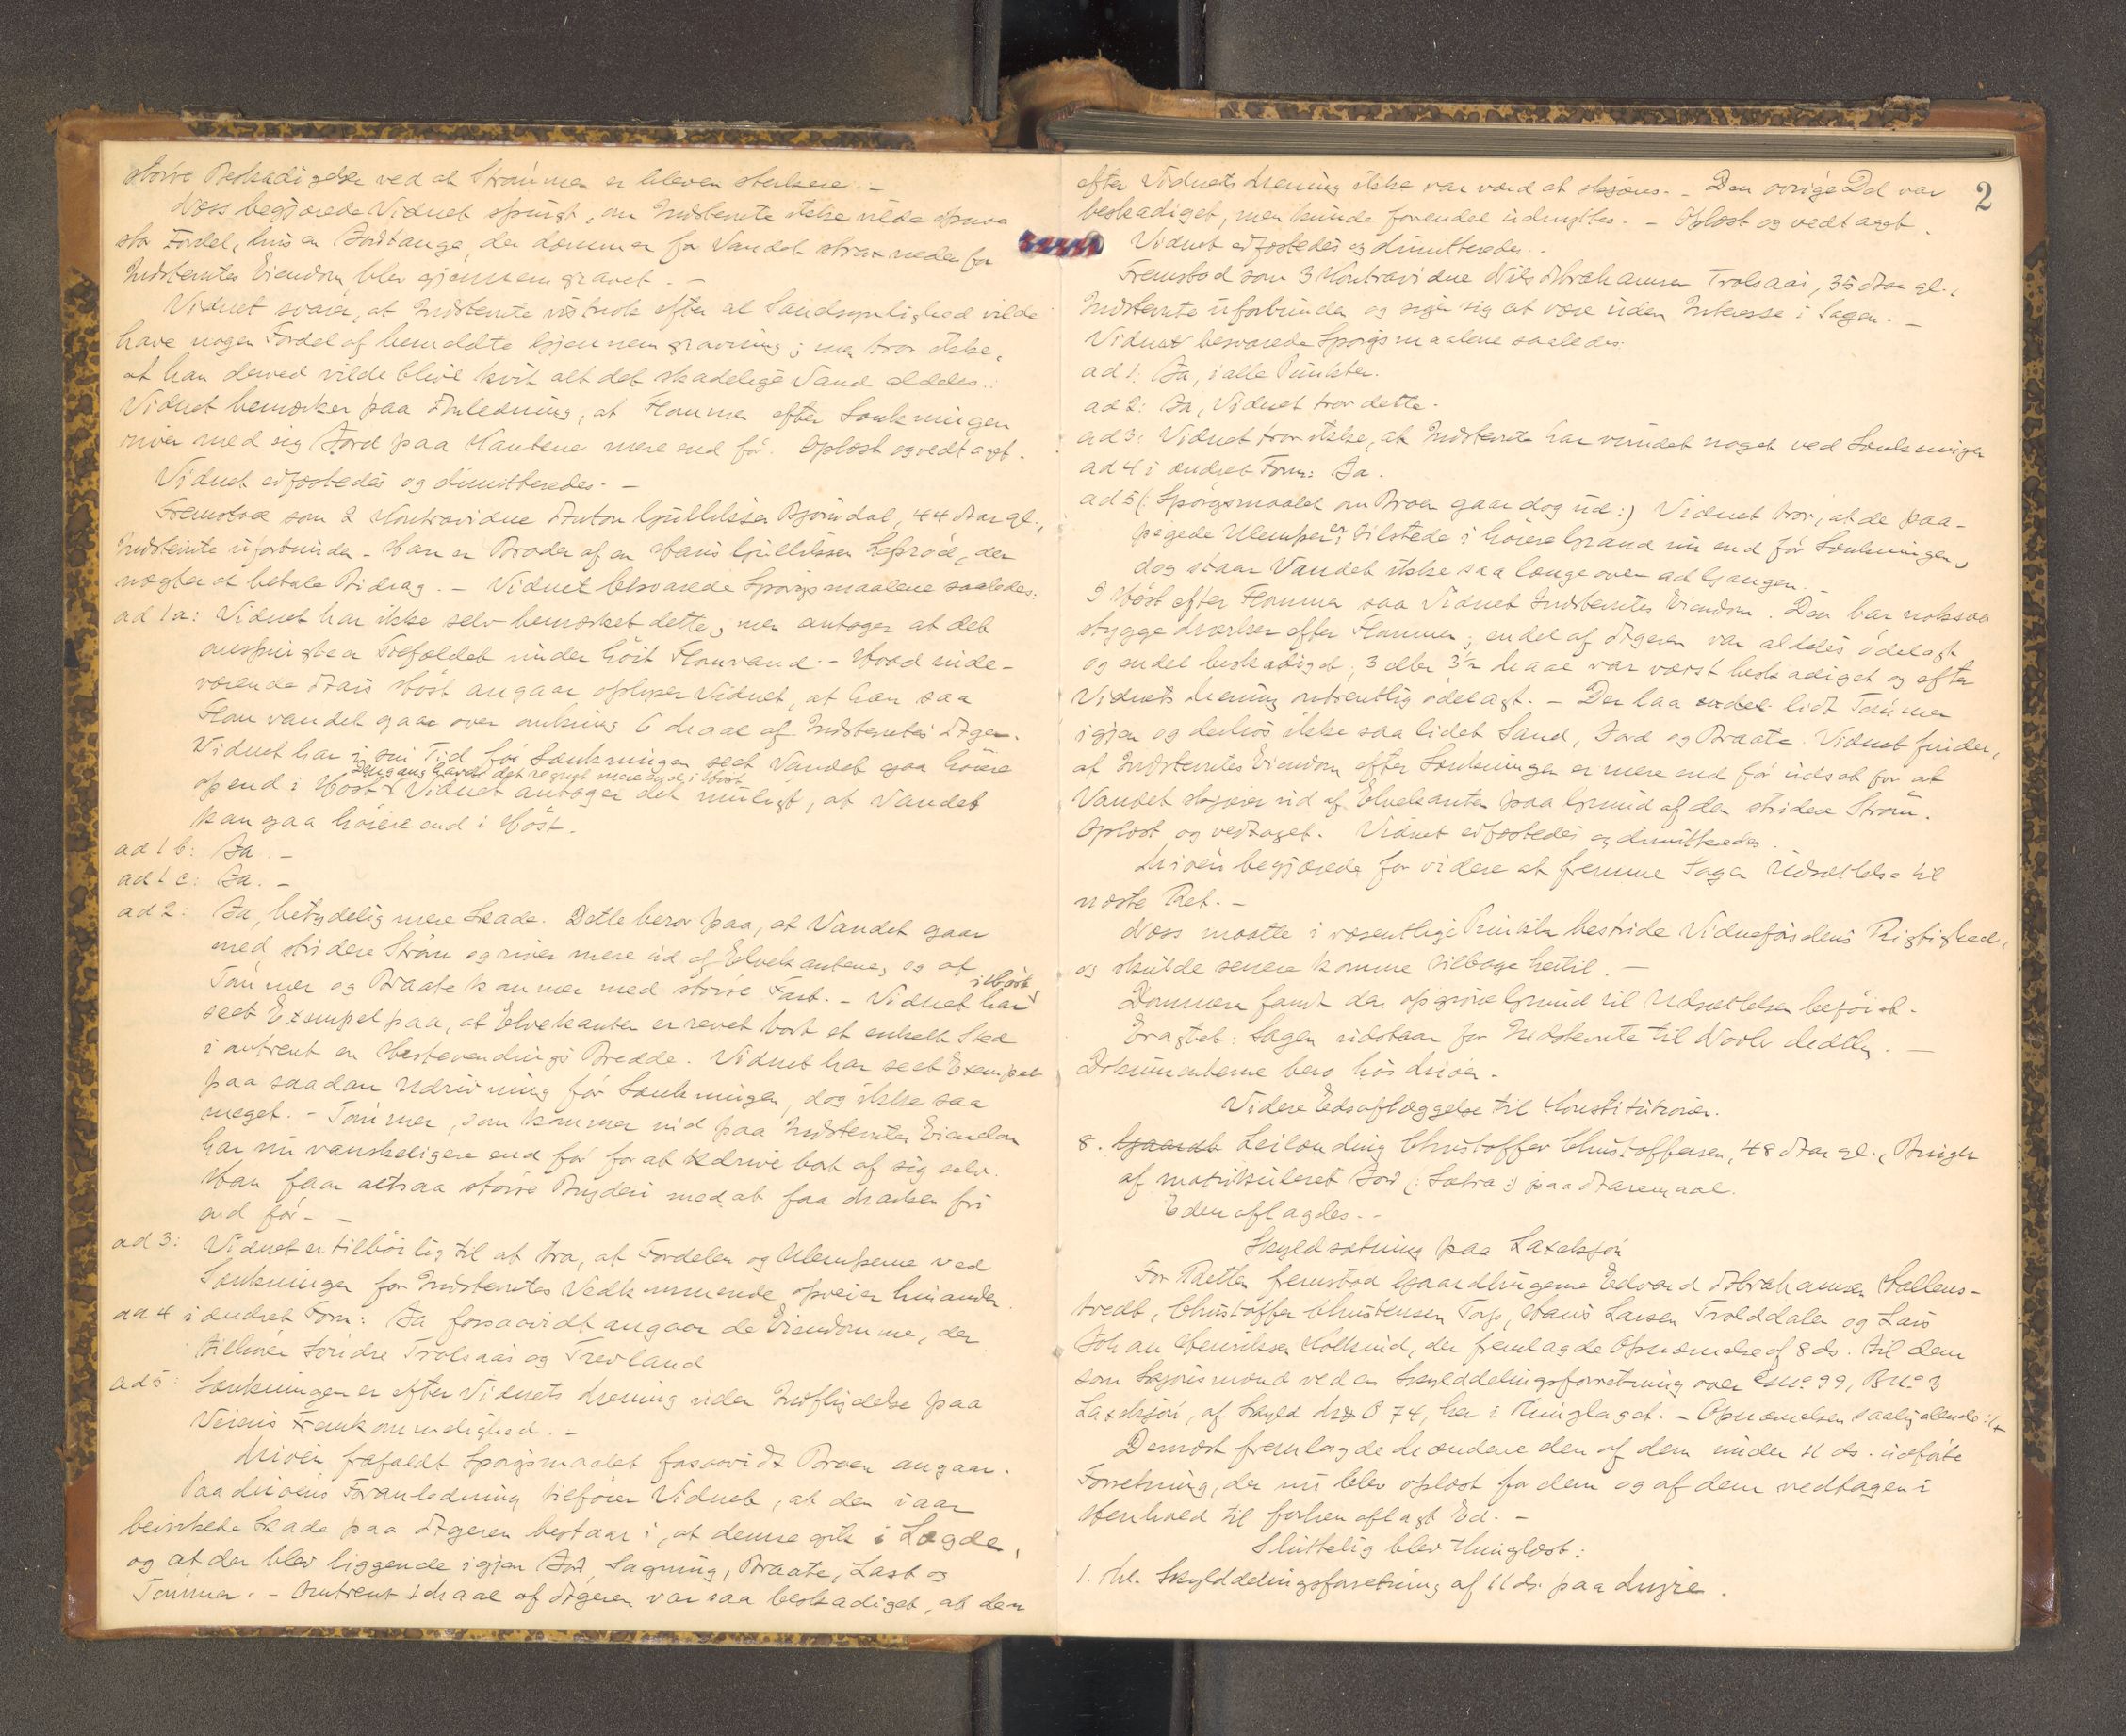 større Beskadigelse ved at Strømmen er bleven sterkere. -
Næss begjærede Vidnet spurgt, om Indstevnte ikke vilde opnaa
stor Fordel, hvis en Jordtange, der dæmmer for Vandet strax nedenfor
Indstevntes Eiendom blev gjennemgravet. -
Vidnet svarer, at Indstevnte vistnok efter al Sandsynlighed vilde
have nogen Fordel af bemeldte Gjennemgravning; men tror ikke,
at han derved vilde blive kvit alt det skadelige Vand aldeles.
Vidnet bemærker paa Anledning, at Flommen efter Sænkningen
river med sig Jord paa Kantene mere end før. Oplæst og vedtaget.
Vidnet edfæstedes og dimitteredes. -
Fremstod som 2 Kontravidne Anton Gulliksen Bjørndal, 44 Aar gl.,
Indstevnte uforbunden - Han er Broder af en Hans Gulliksen Lefsrød, der
nægter at betale Bidrag. - Vidnet besvarede Spørgsmaalene saaledes:
ad 1a: Vidnet har ikke selv bemærket dette, men antager at det
omspurgte er Tilfældet under høit Flomvand. - Hvad inde-
værende Aars Høst angaar oplyser Vidnet, at han saa
Flomvandet gaa over omkring 6 Maal af Indstevntes Ager.
Vidnet har i sin Tid før Sænkningen seet Vandet gaa høiere
Dengang havde det regnet mere end i Høst
op end i Høst. Vidnet antager det muligt, at Vandet
kan gaa høiere end i Høst.
ad 1 b: Ja. -
ad 1 c: Ja. -
ad 2: Ja, betydelig mere Skade. Dette beror paa, at Vandet gaar
med stridere Strøm og river mere ud af Elvekantene, og at
i Høst
Tømmer og Braate kommer med større Fart. - Vidnet har
seet Exempel paa, at Elvekanten er revet bort et enkelt Sted
i omtrent en Hestevendings Bredde. Vidnet har seet Exempel
paa saadan Udrivning før Sænkningen, dog ikke saa
meget. - Tømmer, som kommer ind paa Indstevntes Eiendom
har nu vanskeligere end før for at drive bort af sig selv.
Han faar altsaa større Bryderi med at faa Marken fri
end før. -
ad 3: Vidnet er tilbøielig til at tro, at Fordelen og Ulemperne ved
Sænkningen for Indstevntes Vedkommende opveier hinanden.
ad 4 i ændret Form: Ja forsaavidt angaar de Eiendomme, der
tilhører Søndre Trolsaas og Trevland
ad 5: Sænkningen er efter Vidnets Mening uden Indflydelse paa
Veiens Fremkommelighed. -
Moién frafaldt Spørgsmaalet forsaavidt Broen angaar.
Paa Moiéns Foranledning tilføier Vidnet, at den iaar
bevirkede Skade paa Ageren bestaar i, at denne gik i Lægde,
og at der blev liggende igjen Jord, Sagmug, Braate, Last og
Tømmer. - Omtrent 1 Maal af Ageren var saa beskadiget, at den
2
efter Vidnets Mening ikke var værd at skjæres. - Den øvrige Del var
beskadiget, men kunde forendel udnyttes. - Oplæst og vedtaget.
Vidnet edfæstedes og dimitteredes. -
Fremstod som 3 Kontravidne Nils Abrahamsen Trolsaas, 35 Aar gl.,
Indstevnte uforbunden og siger sig at være uden Interesse i Sagen. -
Vidnet besvarede Spørgsmaalene saaledes:
ad 1: Ja, i alle Punkter.
ad 2: Ja, Vidnet tror dette.
ad 3: Vidnet tror ikke, at Indstevnte har vundet noget ved Sænkningen
ad 4 i ændret Form: Ja.
ad 5 (: Spørgsmaalet om Broen gaar dog ud :) Vidnet tror, at de paa-
pegede Ulemper er tilstede i høiere Grad nu end før Sænkningen,
dog staar Vandet ikke saa længe over ad Gangen.
I Høst efter Flommen saa Vidnet Indstevntes Eiendom. Den bar noksaa
stygge Mærker efter Flommen; endel af Ageren var aldeles ødelagt
og endel beskadiget; 3 eller 3½ Maal var værst beskadiget og efter
Vidnets Mening omtrentlig ødelagt. - Der laa endel lidt Tømmer
igjen og derhos ikke saa lidet Sand, Jord og Braate. Vidnet finder,
at Indstevntes Eiendom efter Sænkningen er mere end før udsat for at
Vandet skjærer ud af Elvekanten paa Grund af den stridere Strøm.
Oplæst og vedtaget. Vidnet edfæstedes og dimitteredes.
Moién begjærede for videre at fremme Sagen Udsættelse til
næste Ret. -
Næss maatte i væsentlige Punkter bestride Vidneførselens Rigtighed,
og skulde senere komme tilbage hertil. -
Dommeren fandt den opgivne Grund til Udsættelsen beføiet.
Eragtet: Sagen udstaar for Indstevnte til Novbr. Meddlg. -
Dokumenterne bero hos Moién.
Videre Edsaflæggelse til Konstitutionen.
8. Gaardb Leilænding Christoffer Christoffersen, 48 Aar gl., Bruger
af matrikuleret Jord (: Sætra :) paa Aaremaal.
Eden aflagdes. -
Skyldsætning paa Laxeksjøn
For Retten fremstod Gaardbrugerne Edvard Abrahamsen Hallens-
tvedt, Christoffer Christensen Torp, Hans Larsen Trolddalen og Lars
Johan Henriksen Holkind, der fremlagde Opnævnelse af 8 ds. til dem
som Skjønsmænd ved en Skylddelingsforretning over Gno. 99, Bno. 3
Laxeksjøn, af Skyld Mrk 0.74, her i Thinglaget. - Opnævnelsen saalydende: /:
Dernæst fremlagde Mændene den af dem under 11 ds. udførte
Forretning, der nu blev oplæst for dem og af dem vedtagen i
Henhold til forhen aflagt Ed. -
Sluttelig blev thinglæst:
1. Thl. Skylddelingsforretning af 11 ds. paa Myre.